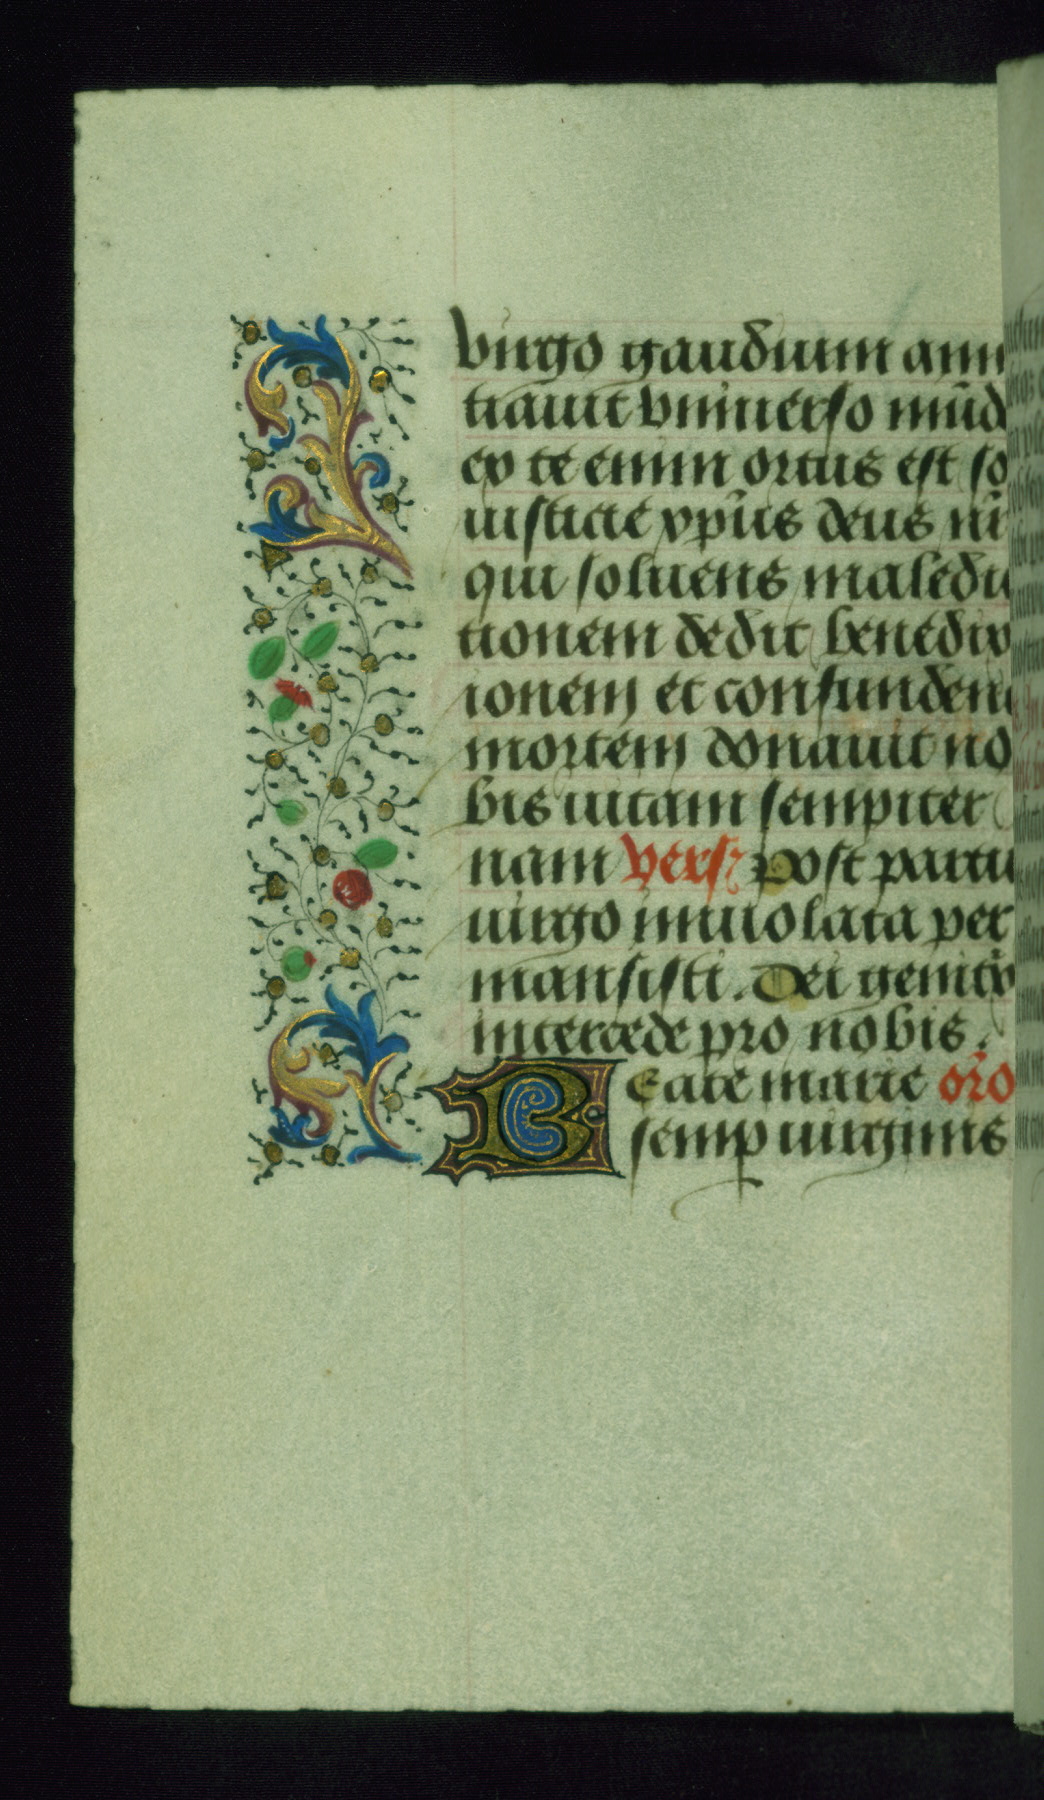 virgo gaudium ann
tiauit vniuerso mūd
ex te enim ortus est so
iusticie xp̄us deus nr̄
qui soluens maledic
tionem dedit benedix
ionem et confundens
mortem donauit no
bis uitam sempiter
nam vers Post partu
uirgo inuiolata per
mansisti. Dei genitr
intercede pro nobis.
Beate marie or̄o
semp uirginis